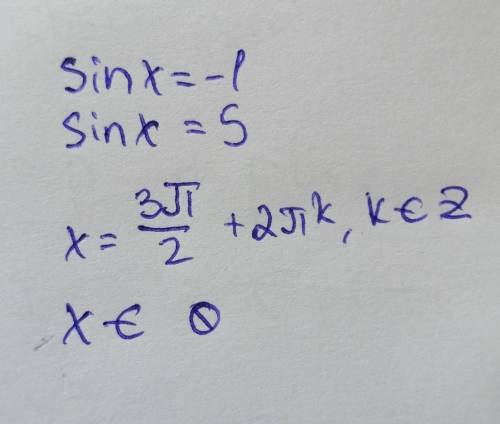 sinx=-1
sinx = 5
x = 3π/2 + 2πk, k ∈ Z
x ∈ ∅